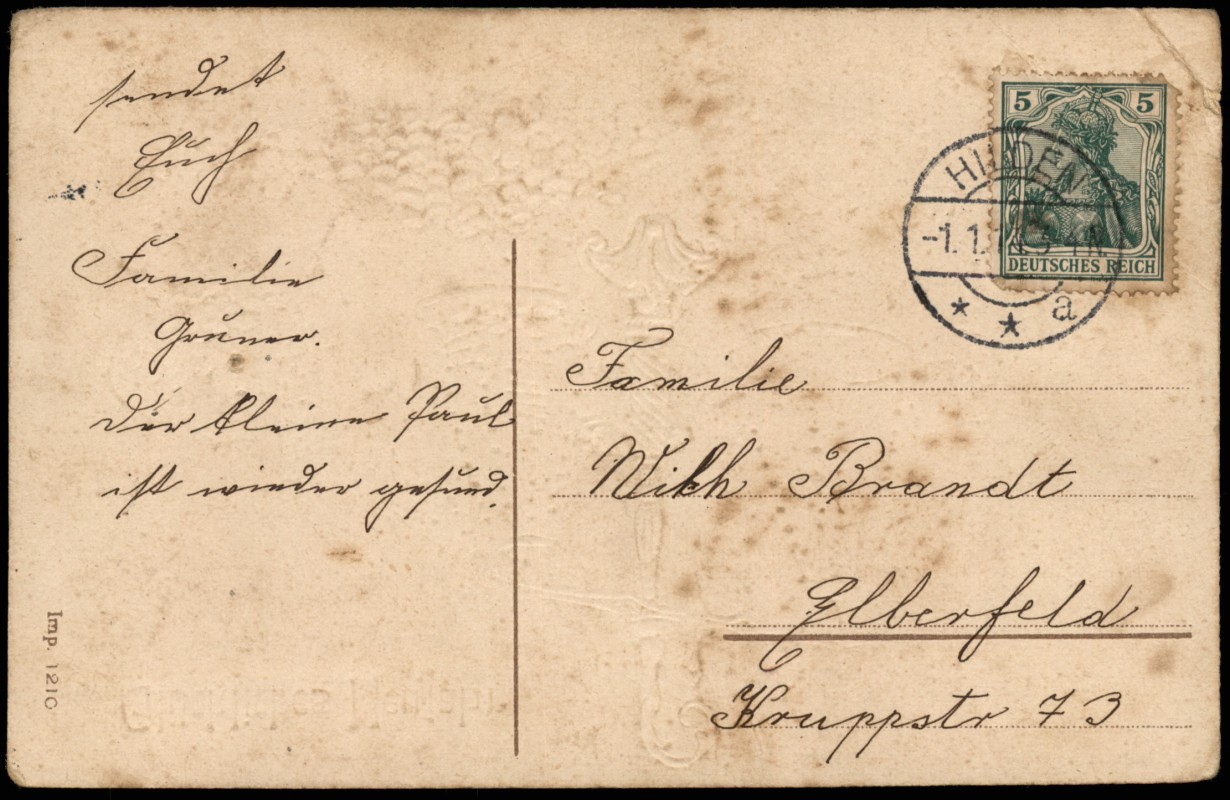 sendet
Euch
Familie
Gruner.
Der kleine Paul
ist wieder gesund.
Imp. 1210
5 5
DEUTSCHES REICH
HILDEN
-1.1.
a
Familie
Wilh Brandt
Elberfeld
Kruppstr 73